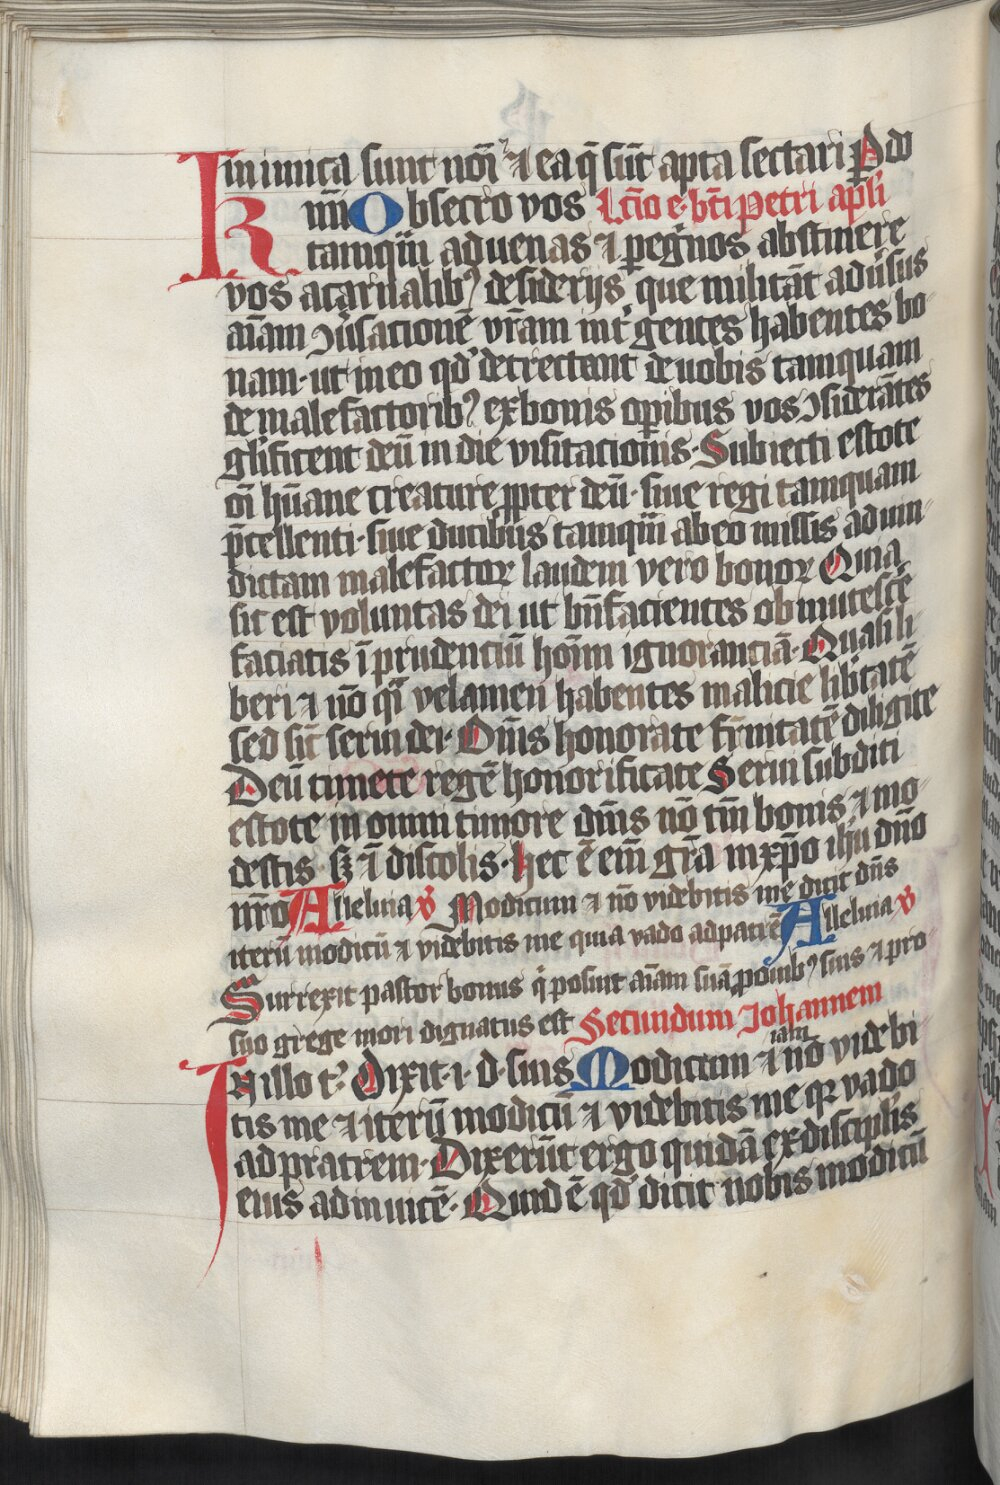 inimica sunt nōı̄ ⁊ ea q̄ sūt apta sectari P do
mı̄n Obsecro vos Lc̄io e· bt̄i petri apl̄i
K tamqͣm aduenas ⁊ ꝑegͥnos abstinere
vos acarnalibꝰ desiderijs que militāt adūsus
aı̄am ꝯu̇sacionē vr̄am int͛ gentes habentes bo-
nam· ut in eo qd̓ detrectant de uobis tamquam
de malefactoribꝰ ex bonis oꝑibus vos ꝯsiderātes
gl̓ificent deū in die visitacionis· Subiecti estote
oı̄ hūane creature ꝓpter deū· siue regi tamquam
p̄cellenti· siue ducibus tamqͣm ab eo missis ad uin-
dictam malefactoꝝ laudem vero bonoꝝ Quia
sic est voluntas dei ut bn̄facientes obmutescē
faciatis īprudenciū hoīm ignoranciā· Quasi li-
beri ⁊ nō qͣi velamen habentes malicie lib̓tatē
sed sic̄ serui dei· Om̄s honorate fr̄nitatē diligite
Deū timete regē honorificate Serui subditi
estote in omni timore dn̄is nō tm̄ bonis ⁊ mo-
destis· sꝫ ⁊ discolis· hec ē em̄ gr̄a in xp̄o ih̄u dn̄o
nr̄o Alleluia ℣ Modicum ⁊ nō videbitis me dicit dn̄s
iterū modicū ⁊ videbitis me quia vado ad patrē Alleluia ℣
Surrexit pastor bonus qͥ posuit aı̄am suā ꝓ ouibꝰ suis ⁊ pro
suo grege mori dignatus est Secundum Johannem
iam
In illo t̓· Dixit· i· d· suis Modicum ⁊ nō videbi
tis me ⁊ iterū modicū ⁊ videbitis me qꝛ vado
ad pratrem· Dixerūt ergo quidā ex discipl̓is
eius adinuicē· Quid ē qd̓ dicit nobis modicū